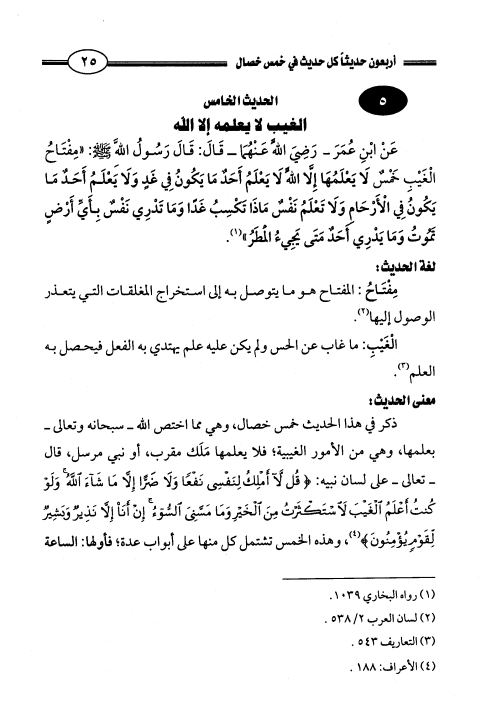 أربعون حديثاً كل حديث في خمس خصال ٢٥
٥ الحديث الخامس
الغيب لا يعلمه إلا الله
عَنْ ابْنِ عُمَرَ ـ رَضِيَ اللهُ عَنْهُمَا ـ قَالَ: قَالَ رَسُولُ اللهِ ﷺ: «مِفْتَاحُ
الْغَيْبِ خَمْسٌ لَا يَعْلَمُهَا إِلَّا اللهُ لَا يَعْلَمُ أَحَدٌ مَا يَكُونُ فِي غَدٍ وَلَا يَعْلَمُ أَحَدٌ مَا
يَكُونُ فِي الْأَرْحَامِ وَلَا تَعْلَمُ نَفْسٌ مَاذَا تَكْسِبُ غَدًا وَمَا تَدْرِي نَفْسٌ بِأَيِّ أَرْضٍ
تَمُوتُ وَمَا يَدْرِي أَحَدٌ مَتَى يَجِيءُ الْمَطَرُ»(١).
لغة الحديث:
مِفْتَاحُ: المفتاح هو ما يتوصل به إلى استخراج المغلقات التي يتعذر
الوصول إليها(٢).
الْغَيْبِ: ما غاب عن الحس ولم يكن عليه علم يهتدي به الفعل فيحصل به
العلم(٣).
معنى الحديث:
ذكر في هذا الحديث خمس خصال، وهي مما اختص الله ـ سبحانه وتعالى ـ
بعلمها، وهي من الأمور الغيبية؛ فلا يعلمها مَلَك مقرب، أو نبي مرسل، قال
ـ تعالى ـ على لسان نبيه: ﴿قُل لَّآ أَمْلِكُ لِنَفْسِى نَفْعًا وَلَا ضَرًّا إِلَّا مَا شَآءَ ٱللَّهُ ۚ وَلَوْ
كُنتُ أَعْلَمُ ٱلْغَيْبَ لَٱسْتَكْثَرْتُ مِنَ ٱلْخَيْرِ وَمَا مَسَّنِىَ ٱلسُّوٓءُ ۚ إِنْ أَنَا۠ إِلَّا نَذِيرٌ وَبَشِيرٌ
لِّقَوْمٍ يُؤْمِنُونَ﴾(٤)، وهذه الخمس تشتمل كل منها على أبواب عدة؛ فأولها: الساعة
(١) رواه البخاري ١٠٣٩.
(٢) لسان العرب ٢/ ٥٣٨.
(٣) التعاريف ٥٤٣.
(٤) الأعراف: ١٨٨.